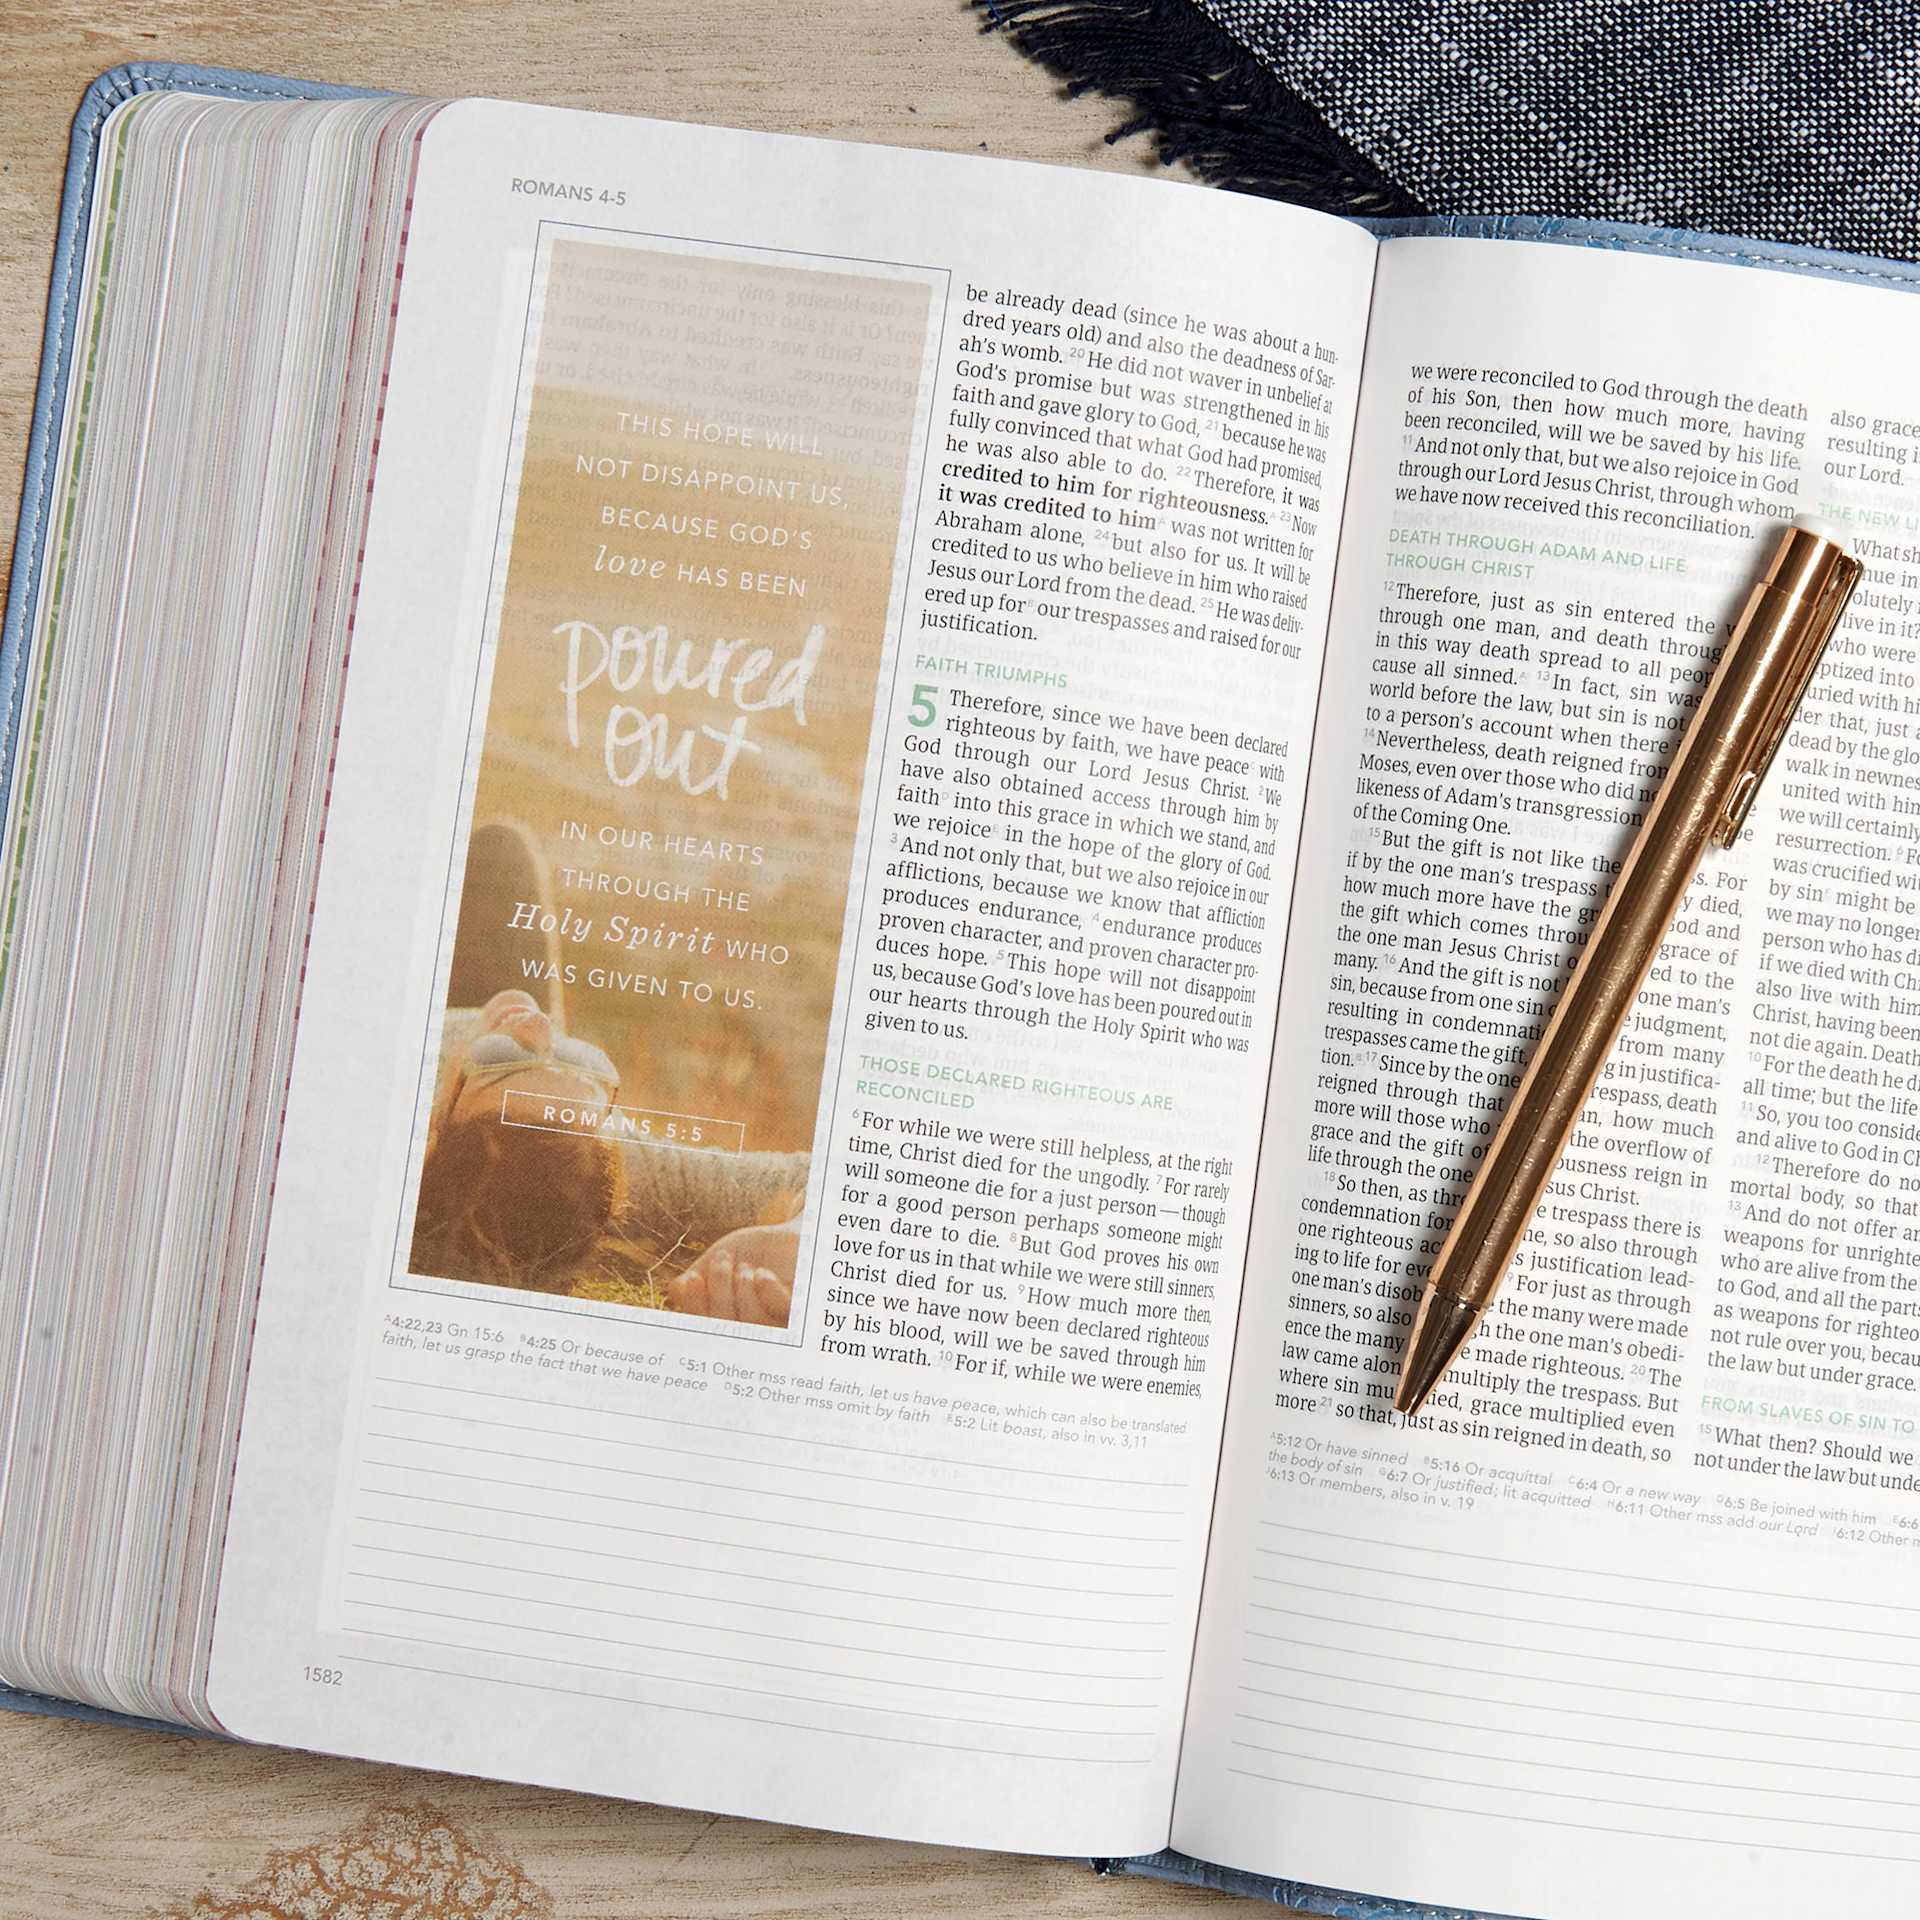 ROMANS 4-5
THIS HOPE WILL
NOT DISAPPOINT US,
BECAUSE GOD'S
love HAS BEEN
poured
out
IN OUR HEARTS
THROUGH THE
Holy Spirit WHO
WAS GIVEN TO US.
ROMANS 5:5
be already dead (since he was about a hun-
dred years old) and also the deadness of Sar-
ah's womb. 20 He did not waver in unbelief at
God's promise but was strengthened in his
faith and gave glory to God, 21 because he was
fully convinced that what God had promised,
he was also able to do. 22 Therefore, it was
credited to him for righteousness.A 23 Now
it was credited to himA was not written for
Abraham alone, 24 but also for us. It will be
credited to us who believe in him who raised
Jesus our Lord from the dead. 25 He was deliv-
ered up forB our trespasses and raised for our
justification.
FAITH TRIUMPHS
5 Therefore, since we have been declared
righteous by faith, we have peaceC with
God through our Lord Jesus Christ. 2 We
have also obtained access through him by
faithD into this grace in which we stand, and
we rejoiceE in the hope of the glory of God.
3 And not only that, but we also rejoice in our
afflictions, because we know that affliction
produces endurance, 4 endurance produces
proven character, and proven character pro-
duces hope. 5 This hope will not disappoint
us, because God's love has been poured out in
our hearts through the Holy Spirit who was
given to us.
THOSE DECLARED RIGHTEOUS ARE
RECONCILED
6 For while we were still helpless, at the right
time, Christ died for the ungodly. 7 For rarely
will someone die for a just person — though
for a good person perhaps someone might
even dare to die. 8 But God proves his own
love for us in that while we were still sinners,
Christ died for us. 9 How much more then,
since we have now been declared righteous
by his blood, will we be saved through him
from wrath. 10 For if, while we were enemies,
A 4:22,23 Gn 15:6 B 4:25 Or because of C 5:1 Other mss read faith, let us have peace, which can also be translated
faith, let us grasp the fact that we have peace D 5:2 Other mss omit by faith E 5:2 Lit boast, also in vv. 3,11
1582
we were reconciled to God through the death
of his Son, then how much more, having
been reconciled, will we be saved by his life.
11 And not only that, but we also rejoice in God
through our Lord Jesus Christ, through whom
we have now received this reconciliation.
DEATH THROUGH ADAM AND LIFE
THROUGH CHRIST
12 Therefore, just as sin entered the
through one man, and death throug
in this way death spread to all peop
cause all sinned.A 13 In fact, sin was
world before the law, but sin is not
to a person's account when there
14 Nevertheless, death reigned from
Moses, even over those who did no
likeness of Adam's transgression
of the Coming One.
15 But the gift is not like the
if by the one man's trespass ss. For
how much more have the gr y died,
the gift which comes throu God and
the one man Jesus Christ grace of
many. 16 And the gift is not ed to the
sin, because from one sin one man's
resulting in condemnati e judgment,
trespasses came the gift, from many
tion.B 17 Since by the one g in justifica-
reigned through that respass, death
more will those who an, how much
grace and the gift of the overflow of
life through the one ousness reign in
sus Christ.
18 So then, as thro e trespass there is
condemnation for ne, so also through
one righteous ac is justification lead-
ing to life for eve 9 For just as through
one man's disob e the many were made
sinners, so also gh the one man's obedi-
ence the many e made righteous. 20 The
law came alon multiply the trespass. But
where sin mu lied, grace multiplied even
more 21 so that, just as sin reigned in death, so
also grace
resulting i
our Lord.
THE NEW LI
What sh
nue in
olutely
live in it?
who were
ptized into
uried with hi
der that, just a
dead by the glo
walk in newnes
united with him
we will certainly
resurrection. 6 Fo
was crucified wit
by sinE might be
we may no longer
person who has di
if we died with Chr
also live with him
Christ, having been
not die again. Death
10 For the death he di
all time; but the life
11 So, you too conside
and alive to God in Ch
12 Therefore do no
mortal body, so that
13 And do not offer an
weapons for unrighte
who are alive from the
to God, and all the parts
as weapons for righteo
not rule over you, becau
the law but under grace.
FROM SLAVES OF SIN TO
15 What then? Should we
not under the law but unde
A 5:12 Or have sinned B 5:16 Or acquittal C 6:4 Or a new way D 6:5 Be joined with him E 6:6
the body of sin G 6:7 Or justified; lit acquitted H 6:11 Other mss add our Lord I 6:12 Other m
J 6:13 Or members, also in v. 19